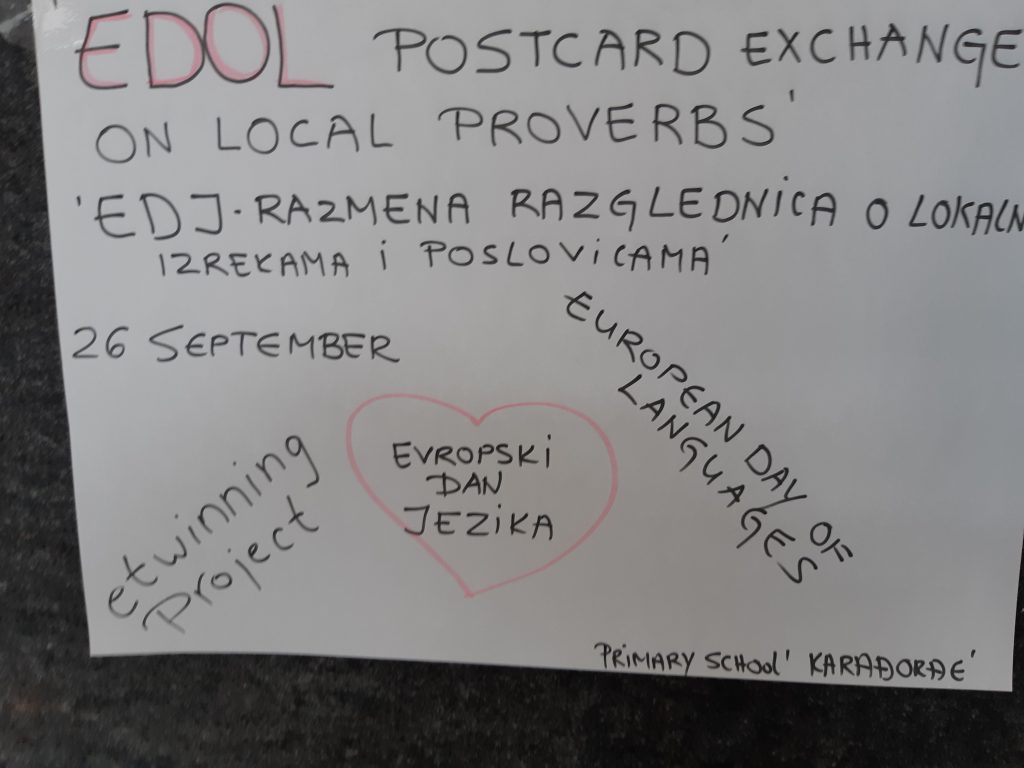 'EDOL POSTCARD EXCHANGE
ON LOCAL PROVERBS'
'EDJ. RAZMENA RAZGLEDNICA O LOKALN
IZREKAMA i POSLOViCAMA'
26 SEPTEMBER
EUROPEAN DAY OF
LANGUAGES
EVROPSKi
DAN
JEZiKA
etwinning
Project
PRiMARY SCHOOl 'KARAĐORĐE'